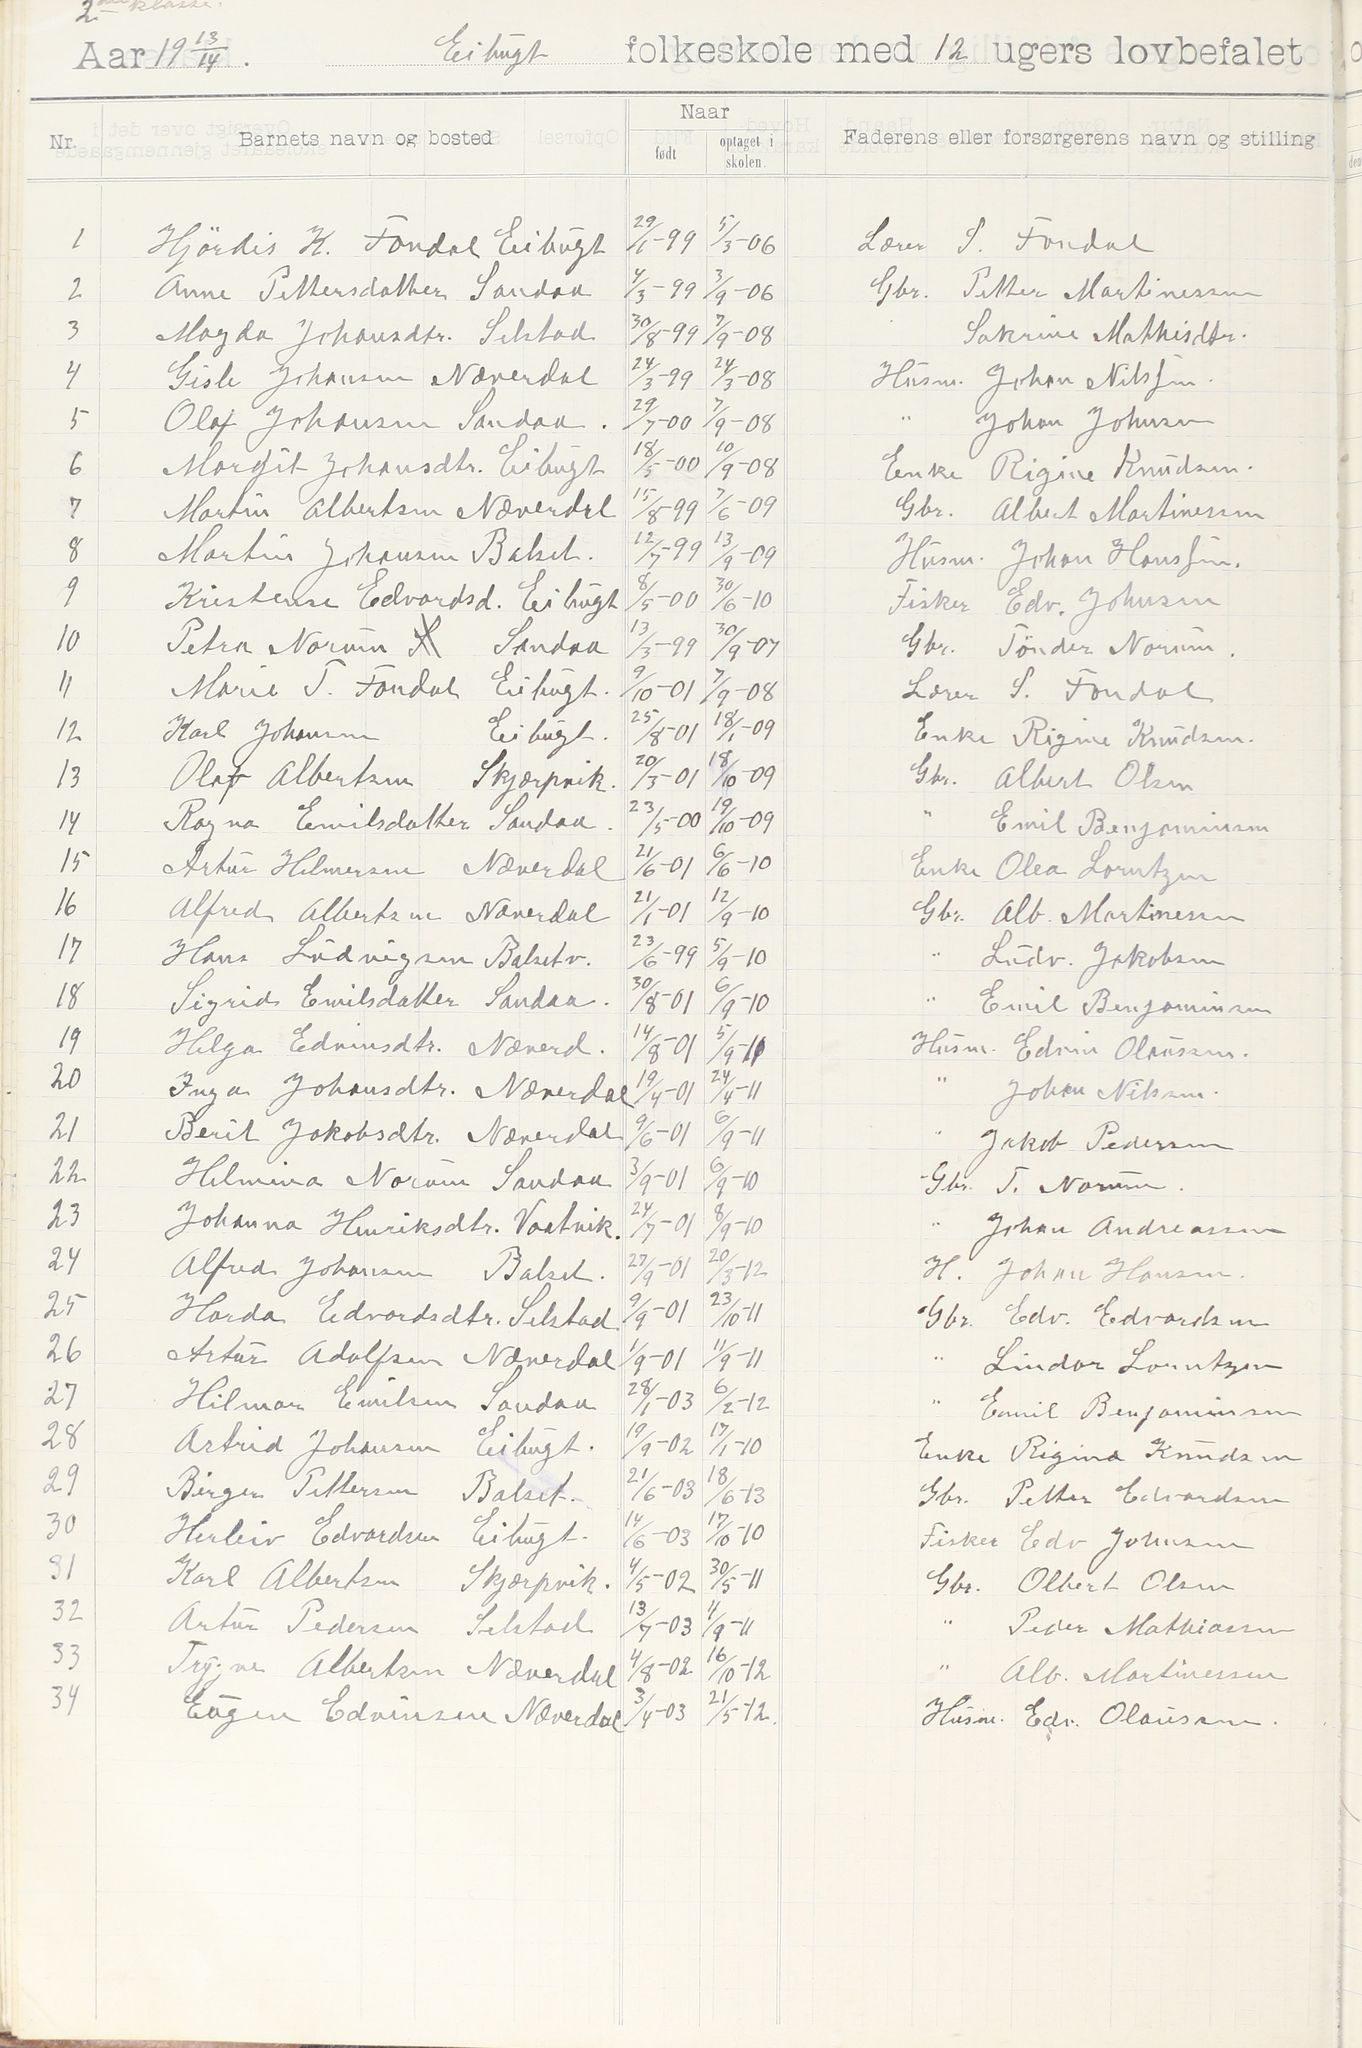 2den klasse.
Aar 19 13/14. Eibugt folkeskole med 12 ugers lovbefalet
Nr. Barnets navn og bosted Naar født optaget i skolen. Faderens eller forsørgerens navn og stilling
1 Hjördis K. Fondal Eibugt 29/1-99 5/3-06 Lærer S. Fondal
2 Anne Pettersdatter Sandaa 4/3-99 3/9-06 Gbr. Petter Martinessen
3 Magda Johansdtr. Selstad 30/8-99 7/9-08 Sakrine Mathisdtr.
4 Gisle Johansen Næverdal 24/3-99 24/3-08 Husm. Johan Nilssen.
5 Olaf Johansen Sandaa. 29/7-00 7/9-08 " Johan Johnsen
6 Margit Johansdtr. Eibugt 18/5-00 10/9-08 Enke Rigine Knudsen.
7 Martin Albertsen Næverdal 15/8-99 7/6-09 Gbr. Albert Martinessen
8 Martin Johansen Balset. 12/7-99 13/9-09 Husm. Johan Hanssen.
9 Kristense Edvardsd. Eibugt 8/5-00 30/6-10 Fisker Edv. Johnsen
10 Petra Norum Sandaa 13/3-99 30/9-07 Gbr. Tönder Norum.
11 Marie T. Fondal Eibugt. 9/10-01 7/9-08 Lærer S. Fondal
12 Karl Johansen Eibugt. 25/8-01 18/1-09 Enke Rigine Knudsen.
13 Olaf Albertsen Skjærpvik. 20/3-01 18/10-09 Gbr. Albert Olsen
14 Ragna Emilsdatter Sandaa. 23/5-00 19/10-09 " Emil Benjaminsen
15 Artur Hilmersen Næverdal 21/6-01 6/6-10 Enke Olea Lorntzen
16 Alfred Albertsen Næverdal 21/1-01 12/9-10 Gbr. Alb. Martinessen
17 Hans Ludvigsen Balsetv. 23/6-99 5/9-10 " Ludv. Jakobsen
18 Sigrid Emilsdatter Sandaa. 30/8-01 6/9-10 " Emil Benjaminsen
19 Helga Edvinsdtr. Næverd. 14/8-01 5/9-11 Husm. Edvin Olaussen.
20 Inga Johansdtr. Næverdal 19/4-01 24/4-11 " Johan Nilssen.
21 Berit Jakobsdtr. Næverdal 9/6-01 6/9-11 " Jakob Pedersen
22 Helmina Norum Sandaa 3/9-01 6/9-10 Gbr. T. Norum.
23 Johanna Henriksdtr. Vaatvik. 24/7-01 8/9-10 " Johan Andreassen
24 Alfred Johansen Balset. 27/9-01 20/3-12 H. Johan Hansen.
25 Harda Edvardsdtr. Selstad 9/9-01 23/10-11 Gbr. Edv. Edvardsen
26 Artur Adolfsen Næverdal 1/9-01 11/9-11 " Lindor Lorntzen
27 Hilmar Emilsen Sandaa 28/1-03 6/2-12 " Emil Benjaminsen
28 Astrid Johansen Eibugt. 19/9-02 17/1-10 Enke Rigina Knudsen
29 Birger Pettersen Balset. 21/6-03 18/6-13 Gbr. Petter Edvardsen
30 Herleiv Edvardsen Eibugt. 14/6-03 17/10-10 Fisker Edv Johnsen
31 Karl Albertsen Skjærpvik. 4/5-02 30/5-11 Gbr. Olbert Olsen
32 Artur Pedersen Selstad 13/7-03 4/9-11 " Peder Mathiassen
33 Trygve Albertsen Næverdal 4/8-02 16/10-12 " Alb. Martinessen
34 Eugen Edvinsen Næverdal 3/4-03 21/5-12. Husm. Edv. Olaussen.